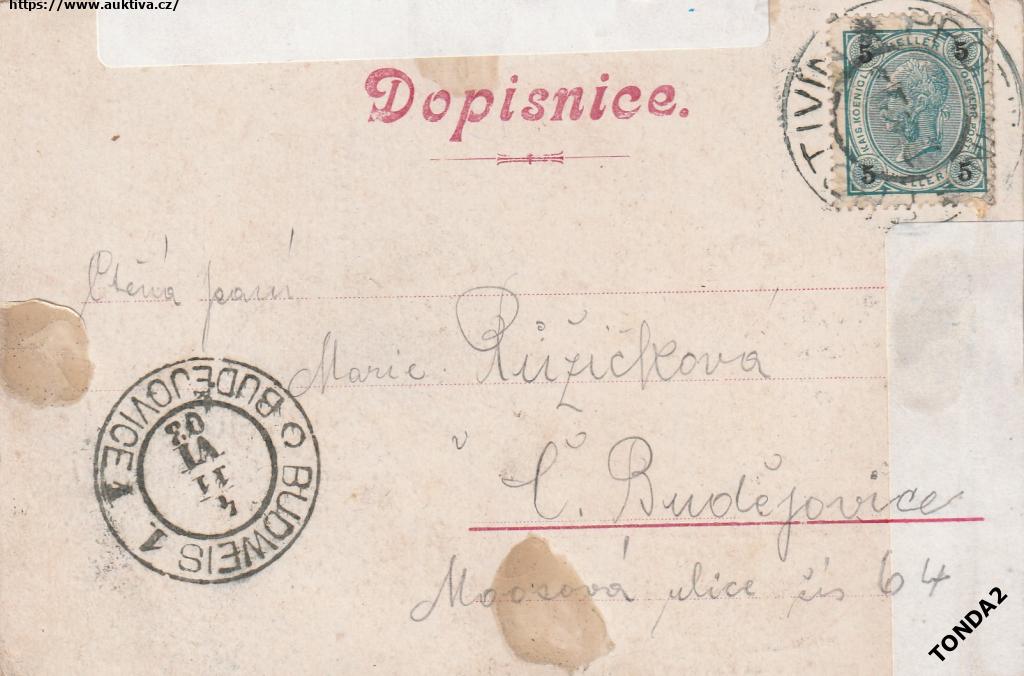 https://www.auktiva.cz/
Dopisnice.
5 HELLER 5
KAIS. KOENIGL.
5 HELLER 5
Ctěná paní
Marie Růžičková
v Č. Budějovice
ulice čís 64
BUDWEIS 1
BUDĚJOVICE 1
4
11
VI
03
TONDA2